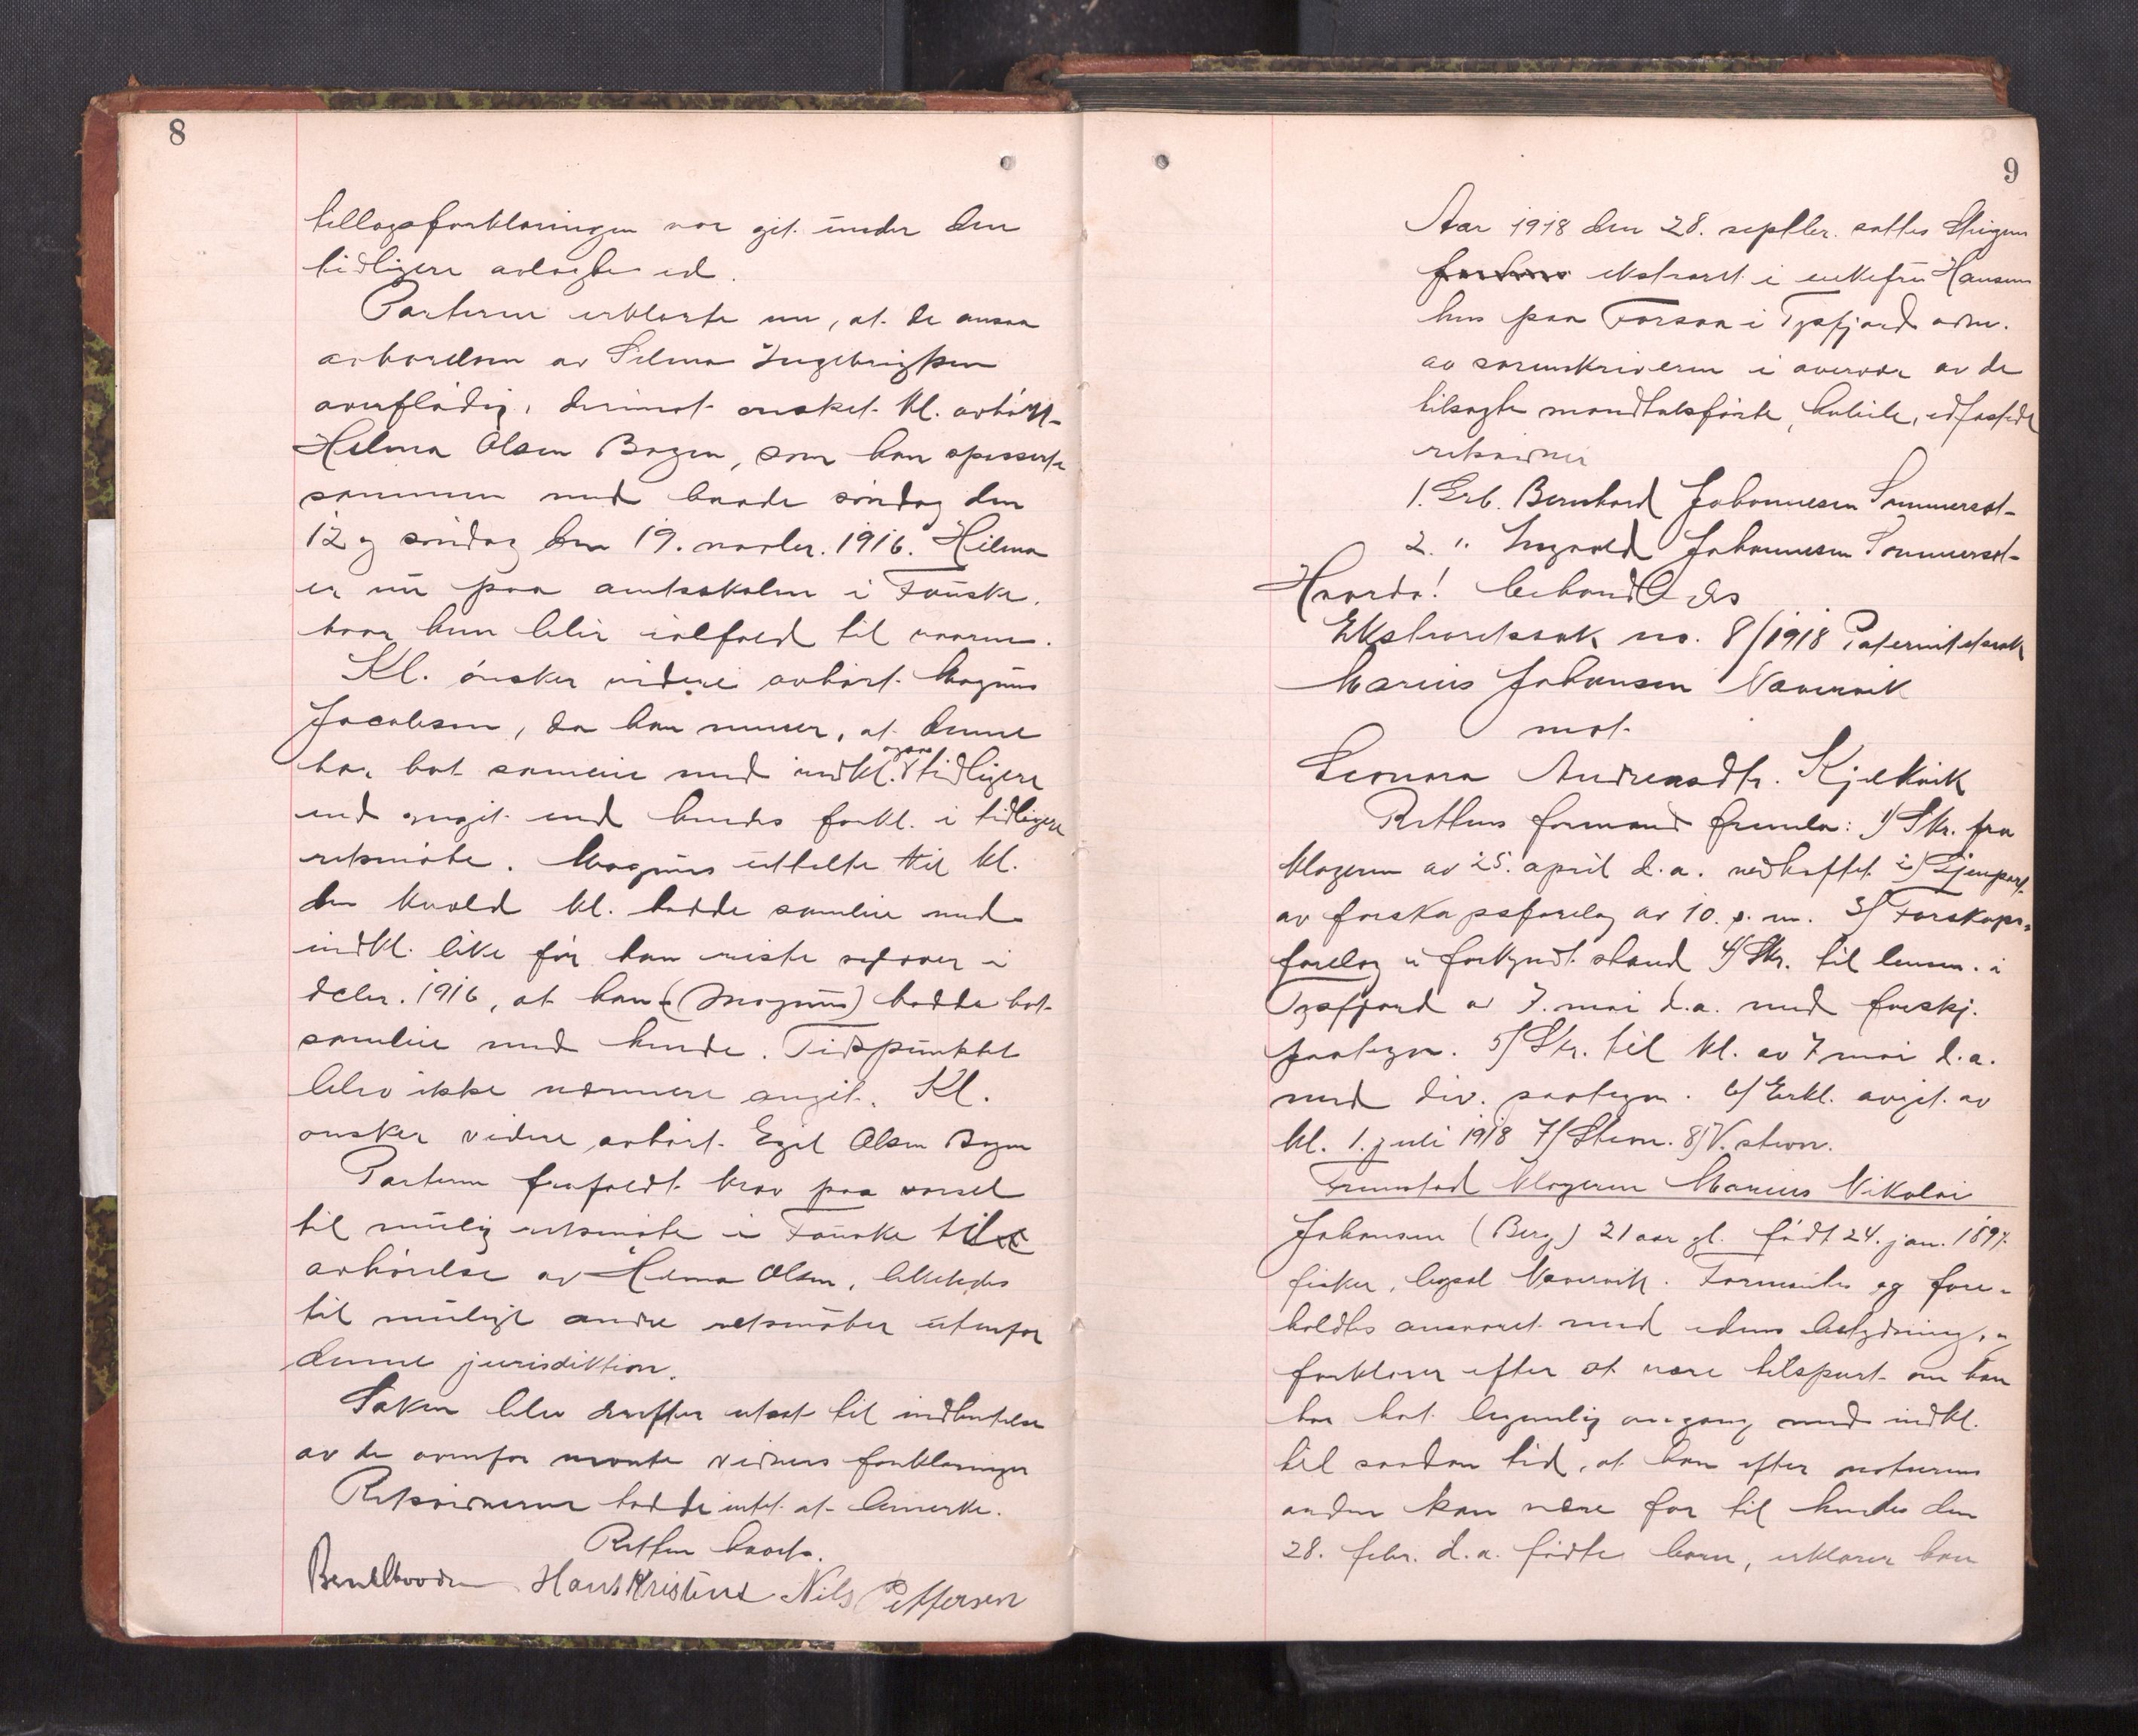 8
tillægsforklaringen var git under den
tidligere avlagte ed.
Parterne erklærte nu, at de ansaa
avhørelsen av Selma Ingebrigtsen
overflødig, derimot ønsket kl. avhørt
Helma Olsen Bogen, som han spasserte
sammen med baade søndag den
12 og søndag den 19. novbr. 1916. Hilma
er nu paa amtsskolen i Fauske,
hvor hun blir ialfald til vaaren.
Kl. ønsker videre avhørt Magnus
Jacobsen, da han mener, at denne
har hat samleie med indkl. ogsaa tidligere
end angit end hendes forkl. i tidligere
retsmøte. Magnus uttalte til kl.
den kveld kl. hadde samleie med
indkl. like før han reiste sydover i
decbr. 1916, at han (Magnus) hadde hat
samleie med hende. Tidspunktet
blev ikke nærmere angit. Kl.
ønsker videre avhørt Egil Olsen Bogen
Parterne frafaldt krav paa varsel
til mulig retsmøte i Fauske til
avhørelse av Hilma Olsen, likeledes
til muligt andre retsmøter utenfor
denne jurisdiktion.
Saken blev derefter utsat til indhentelse
av de ovenfor nævnte vidners forklaringer
Retsvidnerne hadde intet at bemerke.
Retten hævet.
Hans Kristens Nils Pettersen
9
Aar 1918 den 28. septbr. sattes Steigen
ekstraret i enkefru Hansens
hus paa Forsaa i Tysfjord adm.
av sorenskriveren i overvær av de
tilsagte mandtalsførte, habile, edfæstede
retsvidner
1. Grb. Bernhard Johannesen Sommerset
2. " Ingvald Johannesen Sommerset
Hvorda! behandledes
Ekstraretssak no. 8/1918 Paternitetssak
Marius Johansen Nævervik
mot
Leonora Andreasdtr. Kjelkvik
Rettens formand fremla: 1/ Skr. fra
klageren av 25. april d.a. vedheftet 2/ Gjenpart
av forskapsforelæg av 10. s.m. 3/ Forskaps-
forelæg i forkyndt stand 4/ Skr. til lensm. i
Tysfjord av 7. mai d.a. med forskj.
paategn. 5/ Skr. til kl. av 7 mai d.a.
med div. paategn. 6/ Erkl. avgit av
kl. 1. juli 1918 7/ Stevn. 8/ V. stevn.
Fremstod klageren Marius Nikolai
Johansen (Berg) 21 aar gl. født 24. jan. 1897.
fisker, bopæl Nævervik. Formantes og fore-
holdtes ansvaret med edens betydning, og
forklarer efter at være tilspurt om han
har hat legemlig omgang med indkl.
til saadan tid, at han efter naturens
orden kan være far til hendes den
28. febr. d.a. fødte barn, erklærer han